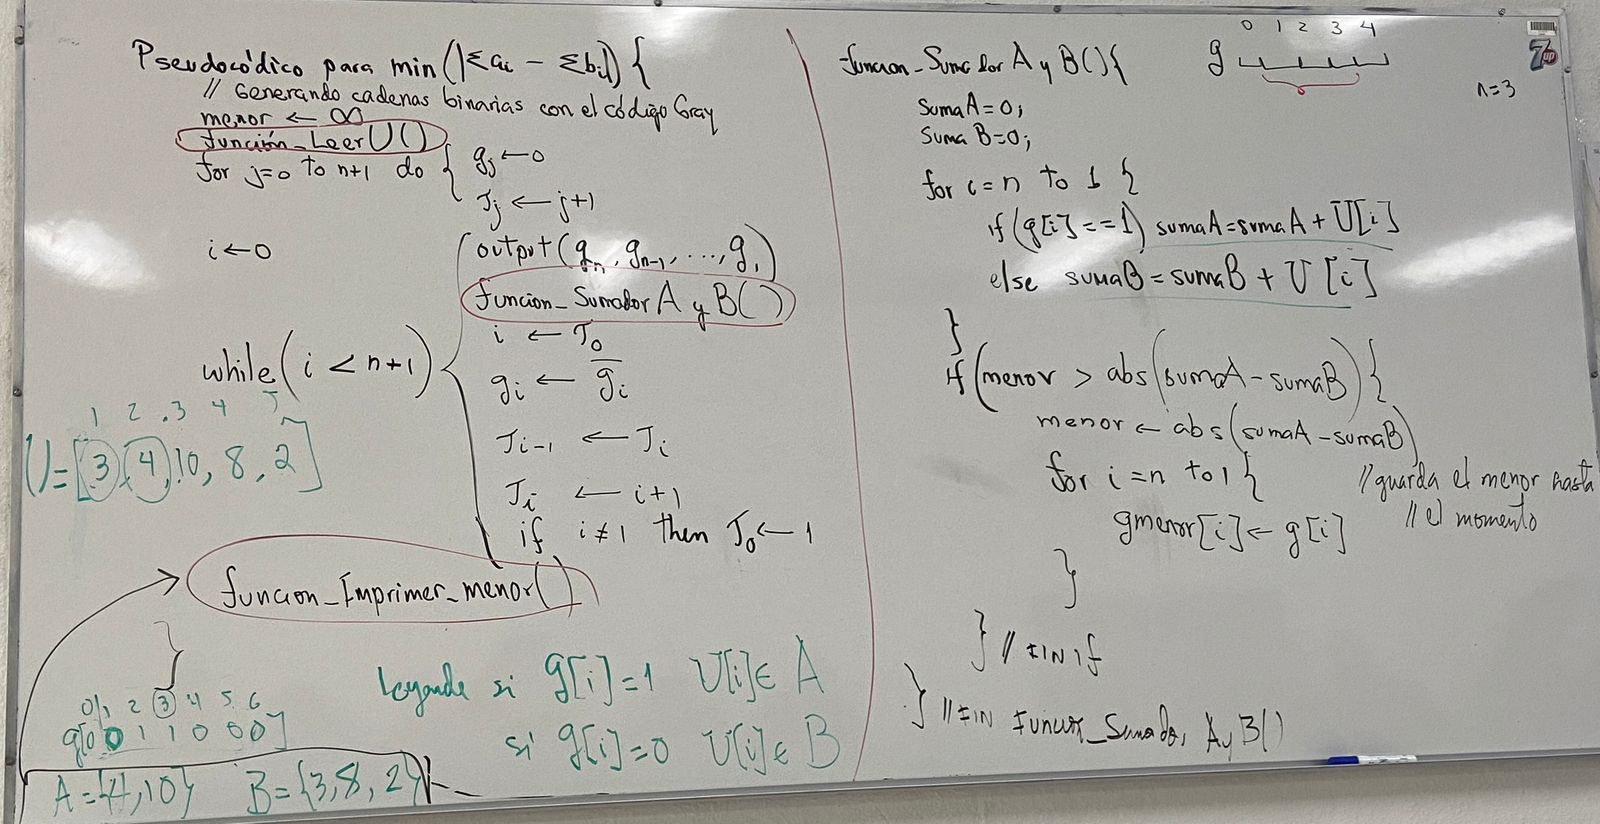 Pseudocódico para min(|Σai - Σbi|) {
// Generando cadenas binarias con el código Gray
menor ← ∞
función_LeerU()
for j=0 to n+1 do { gj ← 0
Jj ← j+1
i ← 0
while(i < n+1) {
output(gn, gn-1, ..., g1)
funcion_SumadorA y B()
i ← J0
gi ← g̅i
Ji-1 ← Ji
Ji ← i+1
if i ≠ 1 then J0 ← 1
funcion_Imprimer_menor()
}
1 2 3 4 5
U=[3, 4, 10, 8, 2]
0 1 2 3 4 5 6
g[0 0 1 1 0 0 0]
A = {4, 10} B = {3, 8, 2}
si g[i]=1 U[i] ∈ A
si g[i]=0 U[i] ∈ B
funcion_Sumador A y B() {
sumaA=0;
SumaB=0;
for i=n to 1 {
if (g[i]==1) sumaA=sumaA + U[i]
else sumaB=sumaB + U[i]
}
if (menor > abs(sumaA - sumaB)) {
menor ← abs(sumaA-sumaB)
for i=n to 1 {
gmenor[i] ← g[i]
//guarda el menor hasta
// el momento
}
} // FIN if
} // FIN Funcion_Sumador A y B()
0 1 2 3 4
g
n=3
7up